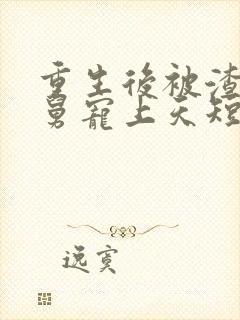 重生後被渣
舅寵上天短
逸寞